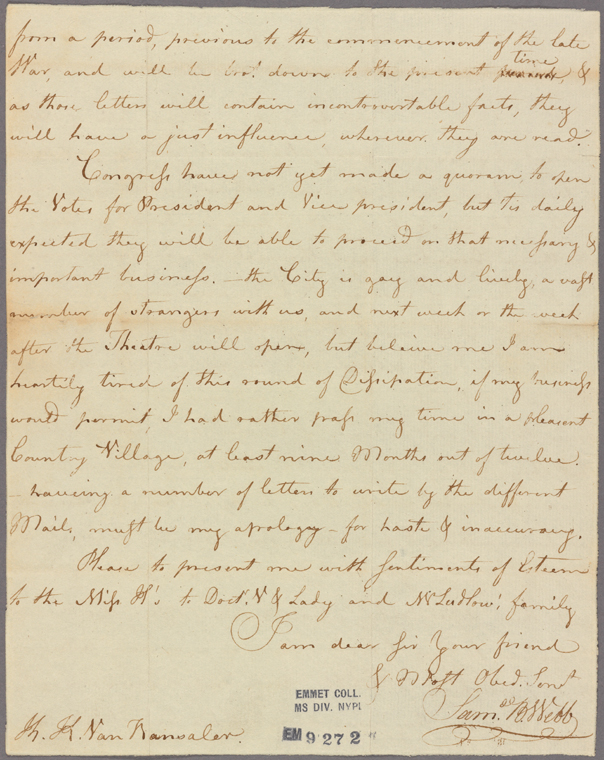 from a period, previous to the commencement of the late
War, and will be bro.t down to the present time &
as those letters will contain incontrovortable facts, they
will have a just influence, wherever they are read.
Congress have not yet made a quoram, to open
the Votes for President and Vice president, but tis daily
expected they will be able to proceed on that necessary &
important business. – the City is gay and lively, a vast
number of strangers with us, and next week or the week
after the Theatre will open, but beleive me I am
heartily tired of this round of Dissipation, if my business
would permit, I had rather pass my time in a pleasent
Country Village, at least nine Months out of twelve.
– haveing a number of letters to write by the different
Mails, must be my apology – for haste & inaccuracy.
Please to present me with Sentiments of Esteem
to the Miss H's to Doct.r V & Lady and Mr Ludlow's family
I am dear Sir Your friend
& Most Obed. Serv.t
Sam.el B. Webb
H. K. Van Ransaler.
EMMET COLL.
MS DIV. NYPL
EM 9272